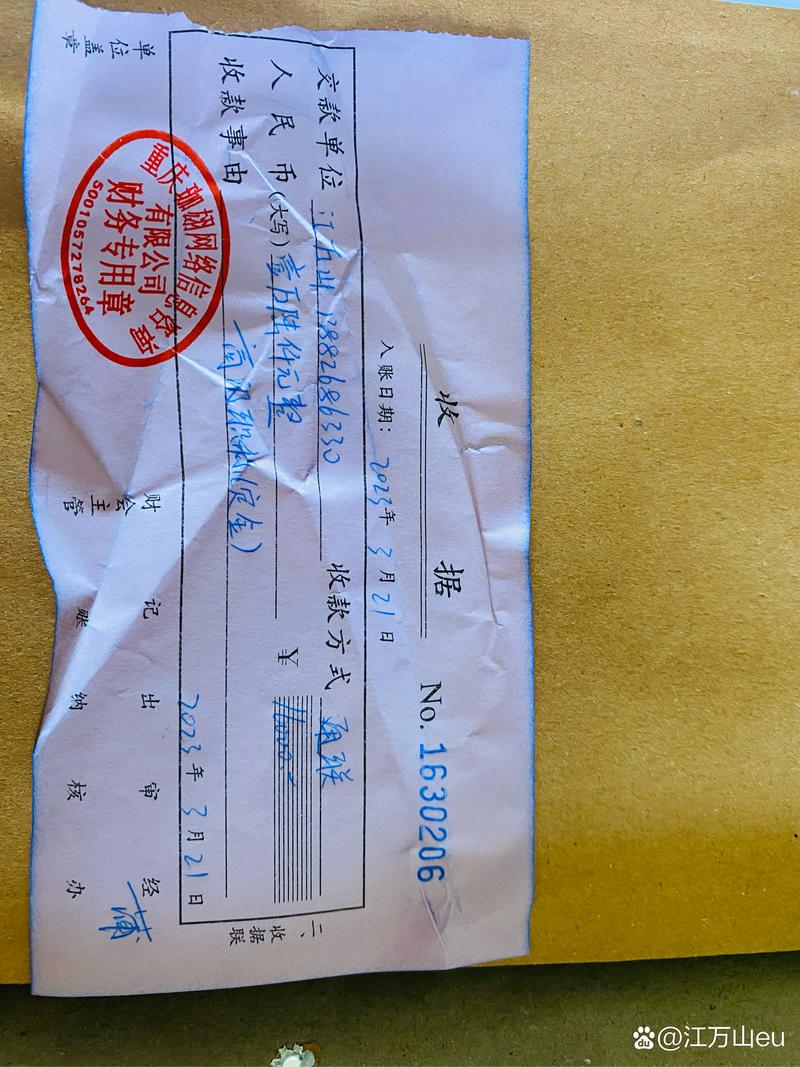 @江万山eu
收 据
No. 1630206
入账日期: 2023年 3月21日
交款单位 江万山 13882686330 收款方式 通联
人民币(大写) 壹万陆仟元整 ¥ 16000.-
收款事由 高级职称(定金)
2023年 3月21日
二、收据联
重庆珈栩网络信息咨询
有限公司
财务专用章
5001057278264
单位盖章 财会主管 记账 出纳 审核 经办 蒲